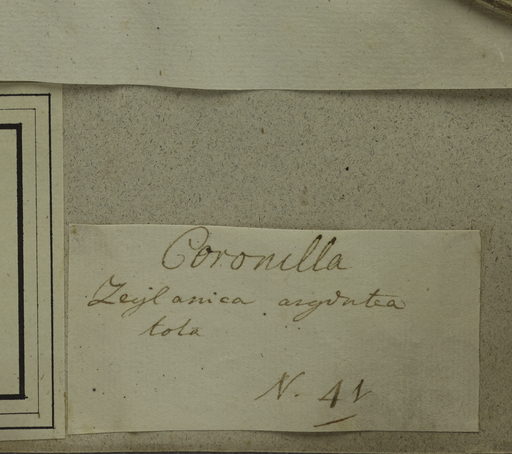 Coronilla
Zeylanica argentea
tota
N. 41